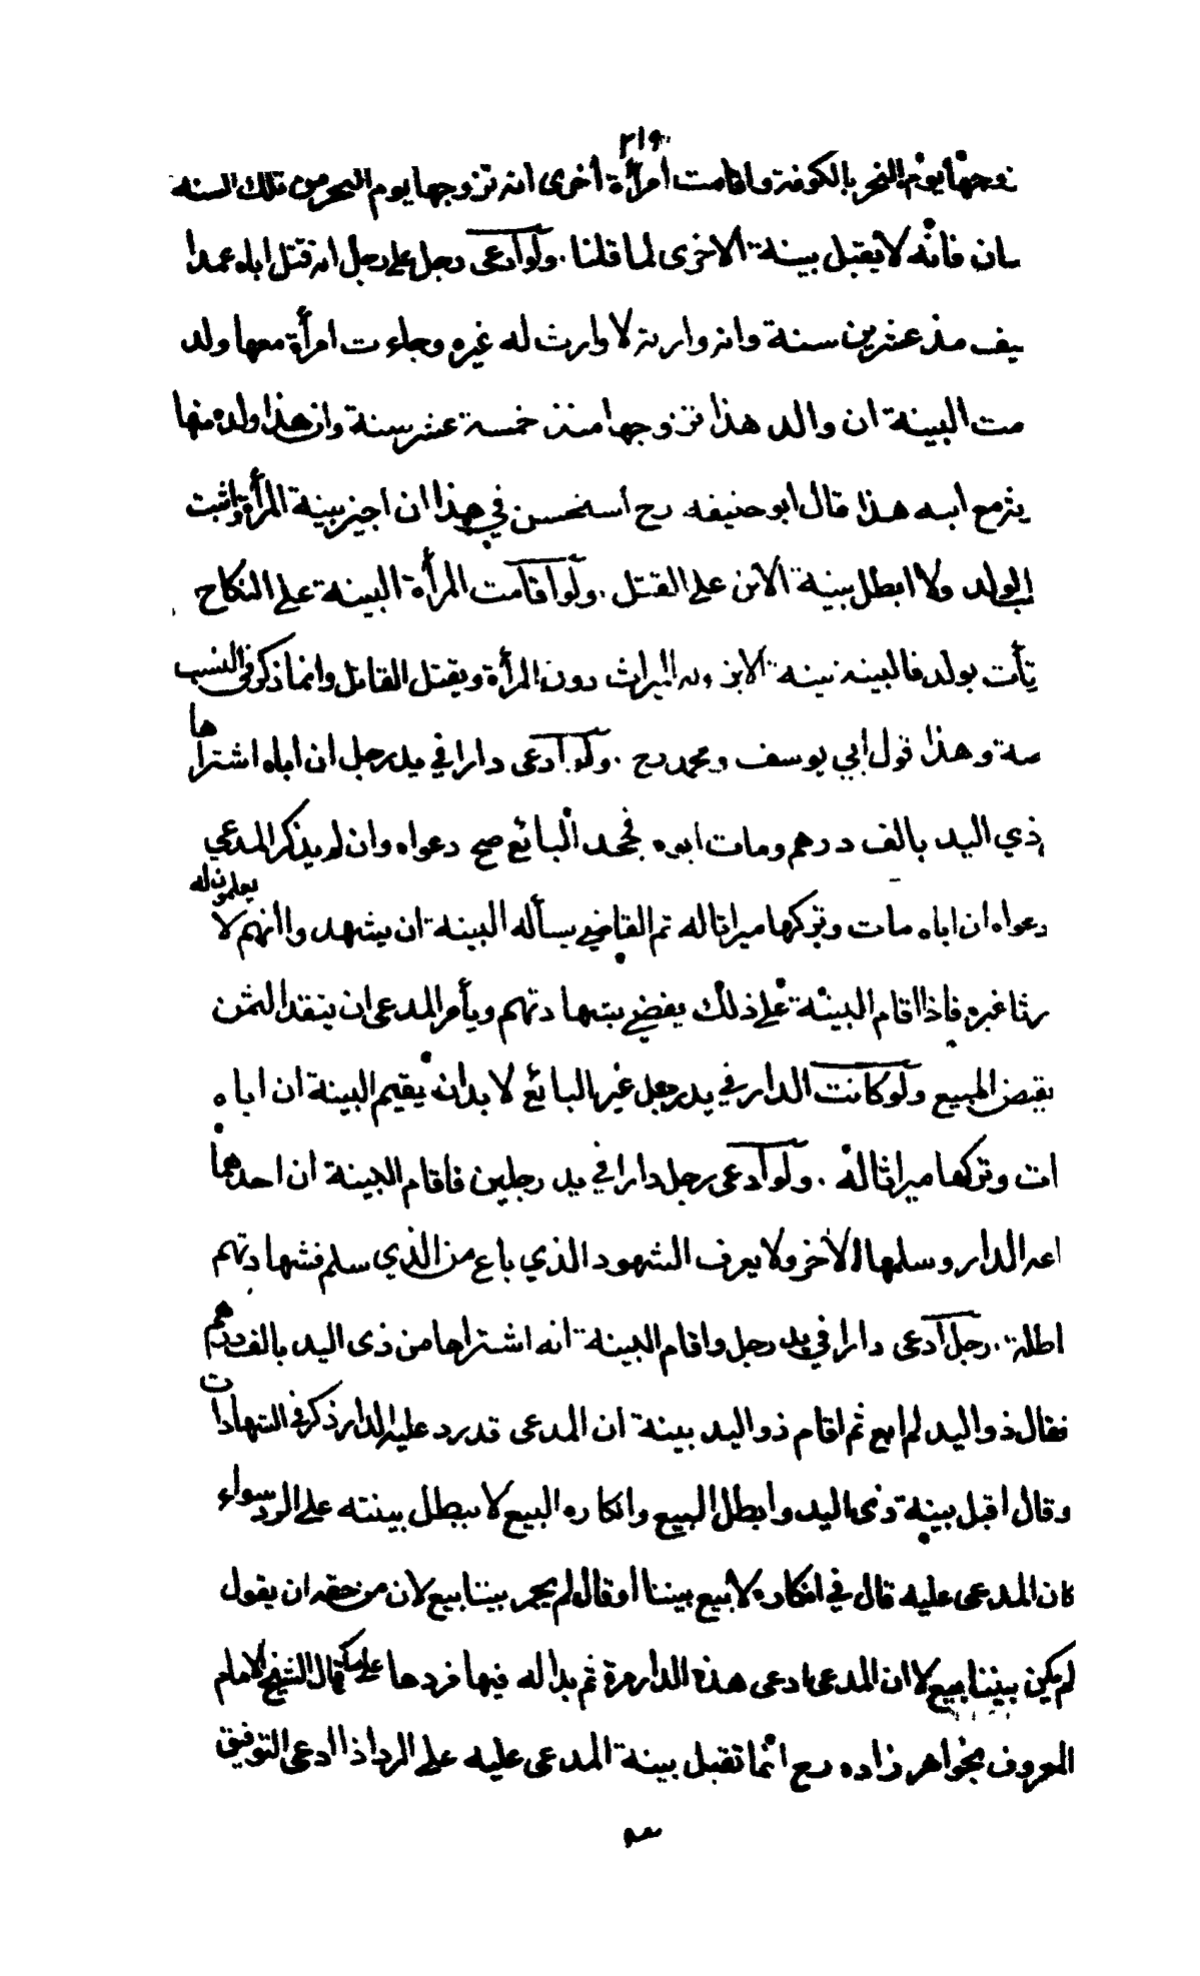 ٢١٩
تزوجها يوم النحر بالكوفة واقامت امرأة أخرى انه تزوجها يوم النحر من تلك السنه
سان فانه لا يقبل بينة الاخرى لما قلنا . ولو ادعى رجل على رجل انه قتل اباه عمدا
سيف مذ عشرين سنة وانه وارثه لا وارث له غيره وجاءت امرأة معها ولد
مت البينة ان والد هذا تزوجها منذ خمسة عشر سنة وان هذا ولده منها
يثرمع ابنه هذا قال ابو حنيفه رح أستحسن في هذا ان اجيز بينة المرأة واثبت
نسب الولد ولا ابطل بينة الابن على القتل . ولو اقامت المرأة البينة على النكاح
تأت بولد فالبينة بينة الابن وله الميراث دون المرأة ويقتل القاتل وانما ذكر في النسب
صة وهذا قول ابي يوسف ومحمد رح . ولو ادعى دارا في يد رجل ان اباه اشتراها
ذي اليد بالف درهم ومات ابوه فجحد البائع صح دعواه وان لم يذكر المدعي
دعواه ان اباه مات وتركها ميراثا له ثم القاضي يسأله البينة ان يشهدوا انهم لا يعلمون له
رثا غيره فاذا اقام البينة على ذلك يقضي بشهادتهم ويأمر المدعى ان ينقد الثمن
يقبض المبيع ولو كانت الدار في يد رجل غير البائع لا بد ان يقيم البينة ان اباه
ات وتركها ميراثا له . ولو ادعى رجل دارا في يد رجلين فاقام البينة ان احدهما
اعه الدار وسلمها الاخر ولا يعرف الشهود الذي باع من الذي سلم فشهادتهم
اطلة . رجل ادعى دارا في يد رجل واقام البينة انه اشتراها من ذى اليد بالف درهم
فقال ذو اليد لم ابع ثم اقام ذو اليد بينة ان المدعى قد رد عليه الدار ذكر في الشهادات
وقال اقبل بينة ذى اليد وابطل البيع وانكاره البيع لا يبطل بينته على الرد سواء
كان المدعى عليه قال في انكاره لا بيع بيننا او قال لم يجر بيننا بيع لان من حقه ان يقول
لم يكن بيننا بيع الا ان المدعى ادعى هذه الدار مرة ثم بدا له فيها فردها على قال الشيخ الامام
المعروف بخواهر زاده رح انما تقبل بينة المدعى عليه على الرد اذا ادعى التوفيق